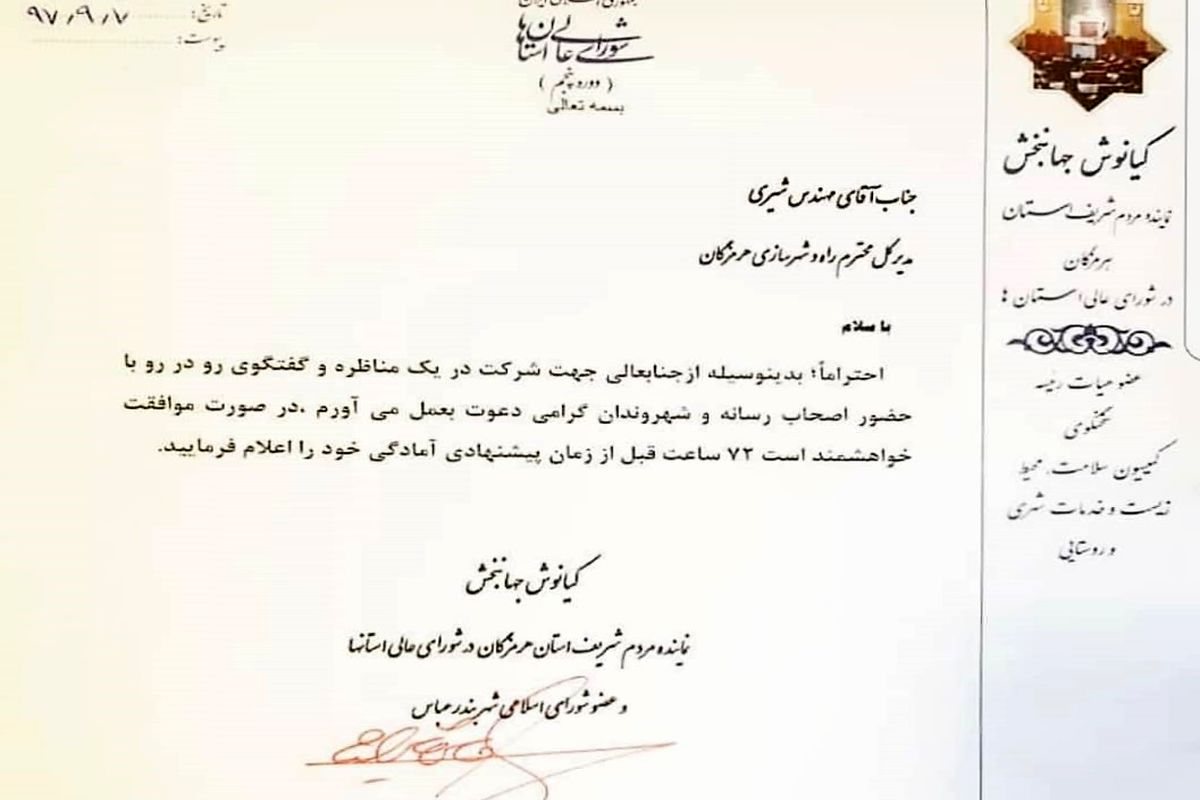 تاریخ: ۹۷/۹/۷
پیوست:
جمهوری اسلامی ایران
شورای عالی استان‌ها
(دوره پنجم)
بسمه تعالی
جناب آقای مهندس شیری
مدیرکل محترم راه و شهرسازی هرمزگان
با سلام
احتراماً؛ بدینوسیله ازجنابعالی جهت شرکت در یک مناظره و گفتگوی رو در رو با
حضور اصحاب رسانه و شهروندان گرامی دعوت بعمل می آورم .در صورت موافقت
خواهشمند است ۷۲ ساعت قبل از زمان پیشنهادی آمادگی خود را اعلام فرمایید.
کیانوش جهانبخش
نماینده مردم شریف استان هرمزگان در شورای عالی استانها
و عضو شورای اسلامی شهر بندرعباس
کیانوش جهانبخش
نماینده مردم شریف استان
هرمزگان
در شورای عالی استان ها
عضو هیات رئیسه
سخنگوی
کمیسیون سلامت، محیط
زیست و خدمات شهری
و روستایی